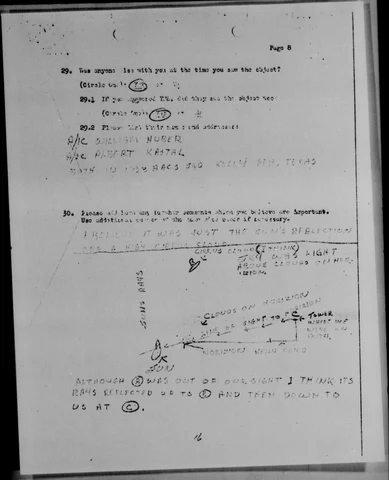 Page 8
29. Was anyone else with you at the time you saw the object?
(Circle One) Yes or No
29.1 If you answered YES, did they see the object too?
(Circle One) Yes or No
29.2 Please list their names and addresses:
A/1C WILLIAM HUBER
A/2C ALBERT
BOTH IN AACS SQ KELLY AFB, TEXAS
30. Please add here any further comments which you believe are important.
Use additional sheets of the same size paper if necessary.
I BELIEVE IT WAS JUST THE SUN'S REFLECTION
OFF A HIGH CIRRUS CLOUD.
CIRRUS CLOUD (I THINK)
SKY WAS LIGHT
ABOVE CLOUDS ON HOR-
IZION.
B
SUNS RAYS
CLOUDS ON HORIZION
LINE OF SIGHT TO HORIZION
C
TOWER
A
HORIZION
SUN
ALTHOUGH A WAS OUT OF OUR SIGHT I THINK ITS
RAYS REFLECTED UP TO B AND THEN DOWN TO
US AT C.
16